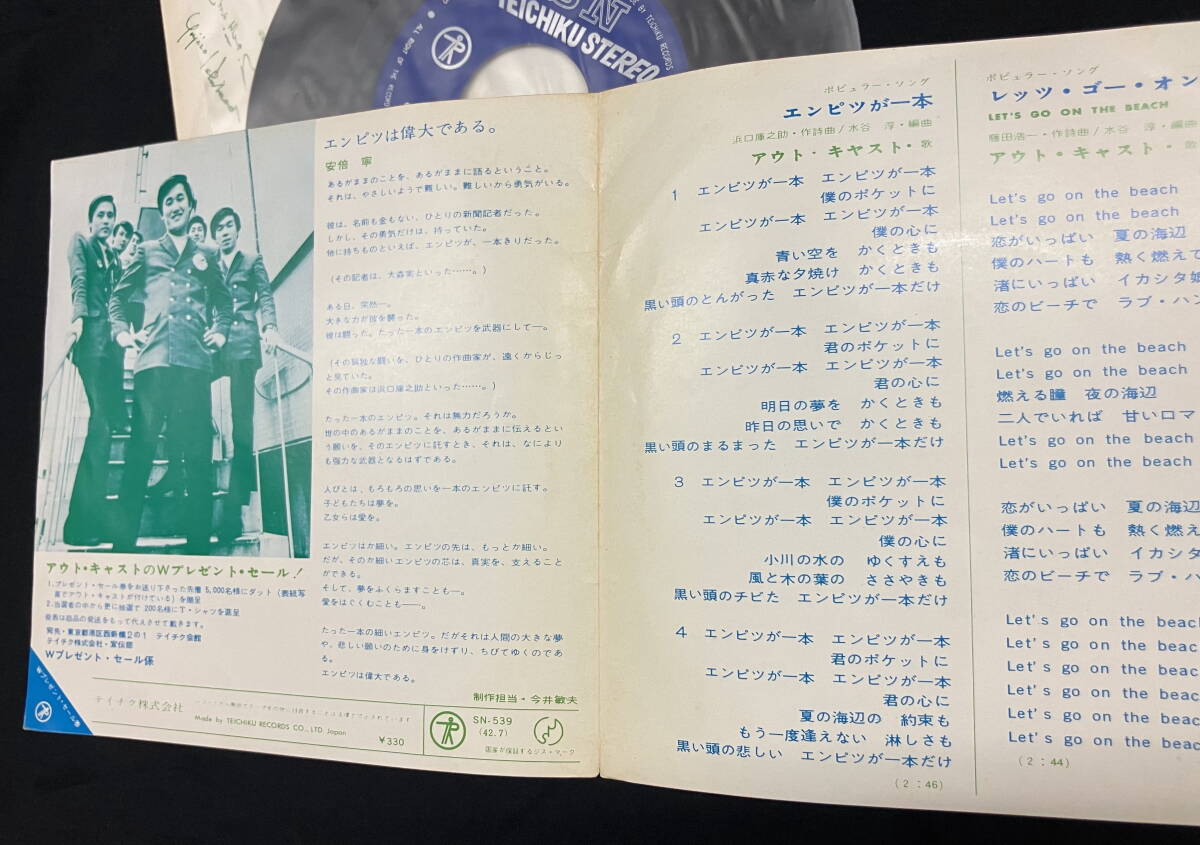 TEICHIKU STEREO
MADE BY TEICHIKU RECORDS
ALL RIGHT OF THE RECORD
エンピツは偉大である。
安倍 寧
あるがままのことを、あるがままに語るということ。
それは、やさしいようで難しい。難しいから勇気がいる。
彼は、名前も金もない、ひとりの新聞記者だった。
しかし、その勇気だけは、持っていた。
他に持ちものといえば、エンピツが、一本きりだった。
(その記者は、大森実といった……。)
ある日、突然―。
大きな力が彼を襲った。
彼は闘った。たった一本のエンピツを武器にして―。
(その孤独な闘いを、ひとりの作曲家が、遠くからじっ
と見ていた。
その作曲家は浜口庫之助といった……。)
たった一本のエンピツ。それは無力だろうか。
世の中のあるがままのことを、あるがままに伝えるとい
う願いを、そのエンピツに託すとき、それは、なにより
も強力な武器となるはずである。
人びとは、もろもろの思いを一本のエンピツに託す。
子どもたちは夢を。
乙女らは愛を。
エンピツはか細い。エンピツの先は、もっとか細い。
だが、そのか細いエンピツの芯は、真実を、支えること
ができる。
そして、夢をふくらますことも―。
愛をはぐくむことも――。
たった一本の細いエンピツ。だがそれは人間の大きな夢
や、悲しい願いのために身をけずり、ちびてゆくのであ
る。
エンピツは偉大である。
制作担当・今井敏夫
アウト・キャストのWプレゼント・セール!
1.プレゼント・セール券をお送り下さった先着 5,000名様にダット(表紙写
真でアウト・キャストが付けている)を贈呈
2.当選者の中から更に抽選で 200名様にT・シャツを進呈
発表は賞品の発送をもって代えさせて戴きます。
宛先・東京都港区西新橋2の1 テイチク会館
テイチク株式会社・宣伝部
Wプレゼント・セール係
Wプレゼント・セール券
テイチク株式会社
Made by TEICHIKU RECORDS CO., LTD Japan
¥330
SN-539
(42.7)
国家が保証するジス・マーク
ポピュラー・ソング
エンピツが一本
浜口庫之助・作詩曲/水谷 淳・編曲
アウト・キャスト・歌
1 エンピツが一本 エンピツが一本
僕のポケットに
エンピツが一本 エンピツが一本
僕の心に
青い空を かくときも
真赤な夕焼け かくときも
黒い頭のとんがった エンピツが一本だけ
2 エンピツが一本 エンピツが一本
君のポケットに
エンピツが一本 エンピツが一本
君の心に
明日の夢を かくときも
昨日の思いで かくときも
黒い頭のまるまった エンピツが一本だけ
3 エンピツが一本 エンピツが一本
僕のポケットに
エンピツが一本 エンピツが一本
僕の心に
小川の水の ゆくすえも
風と木の葉の ささやきも
黒い頭のチビた エンピツが一本だけ
4 エンピツが一本 エンピツが一本
君のポケットに
エンピツが一本 エンピツが一本
君の心に
夏の海辺の 約束も
もう一度逢えない 淋しさも
黒い頭の悲しい エンピツが一本だけ
(2:46)
ポピュラー・ソング
レッツ・ゴー・オン
LET'S GO ON THE BEACH
藤田浩一・作詩曲/水谷 淳・編曲
アウト・キャスト・歌
Let's go on the beach
Let's go on the beach
恋がいっぱい 夏の海辺
僕のハートも 熱く燃えて
渚にいっぱい イカシタ娘
恋のビーチで ラブ・ハン
Let's go on the beach
Let's go on the beach
燃える瞳 夜の海辺
二人でいれば 甘いロマ
Let's go on the beach
Let's go on the beach
恋がいっぱい 夏の海辺
僕のハートも 熱く燃え
渚にいっぱい イカシタ
恋のビーチで ラブ・ハ
Let's go on the beach
Let's go on the beac
Let's go on the beac
Let's go on the beac
Let's go on the beac
Let's go on the beac
(2:44)